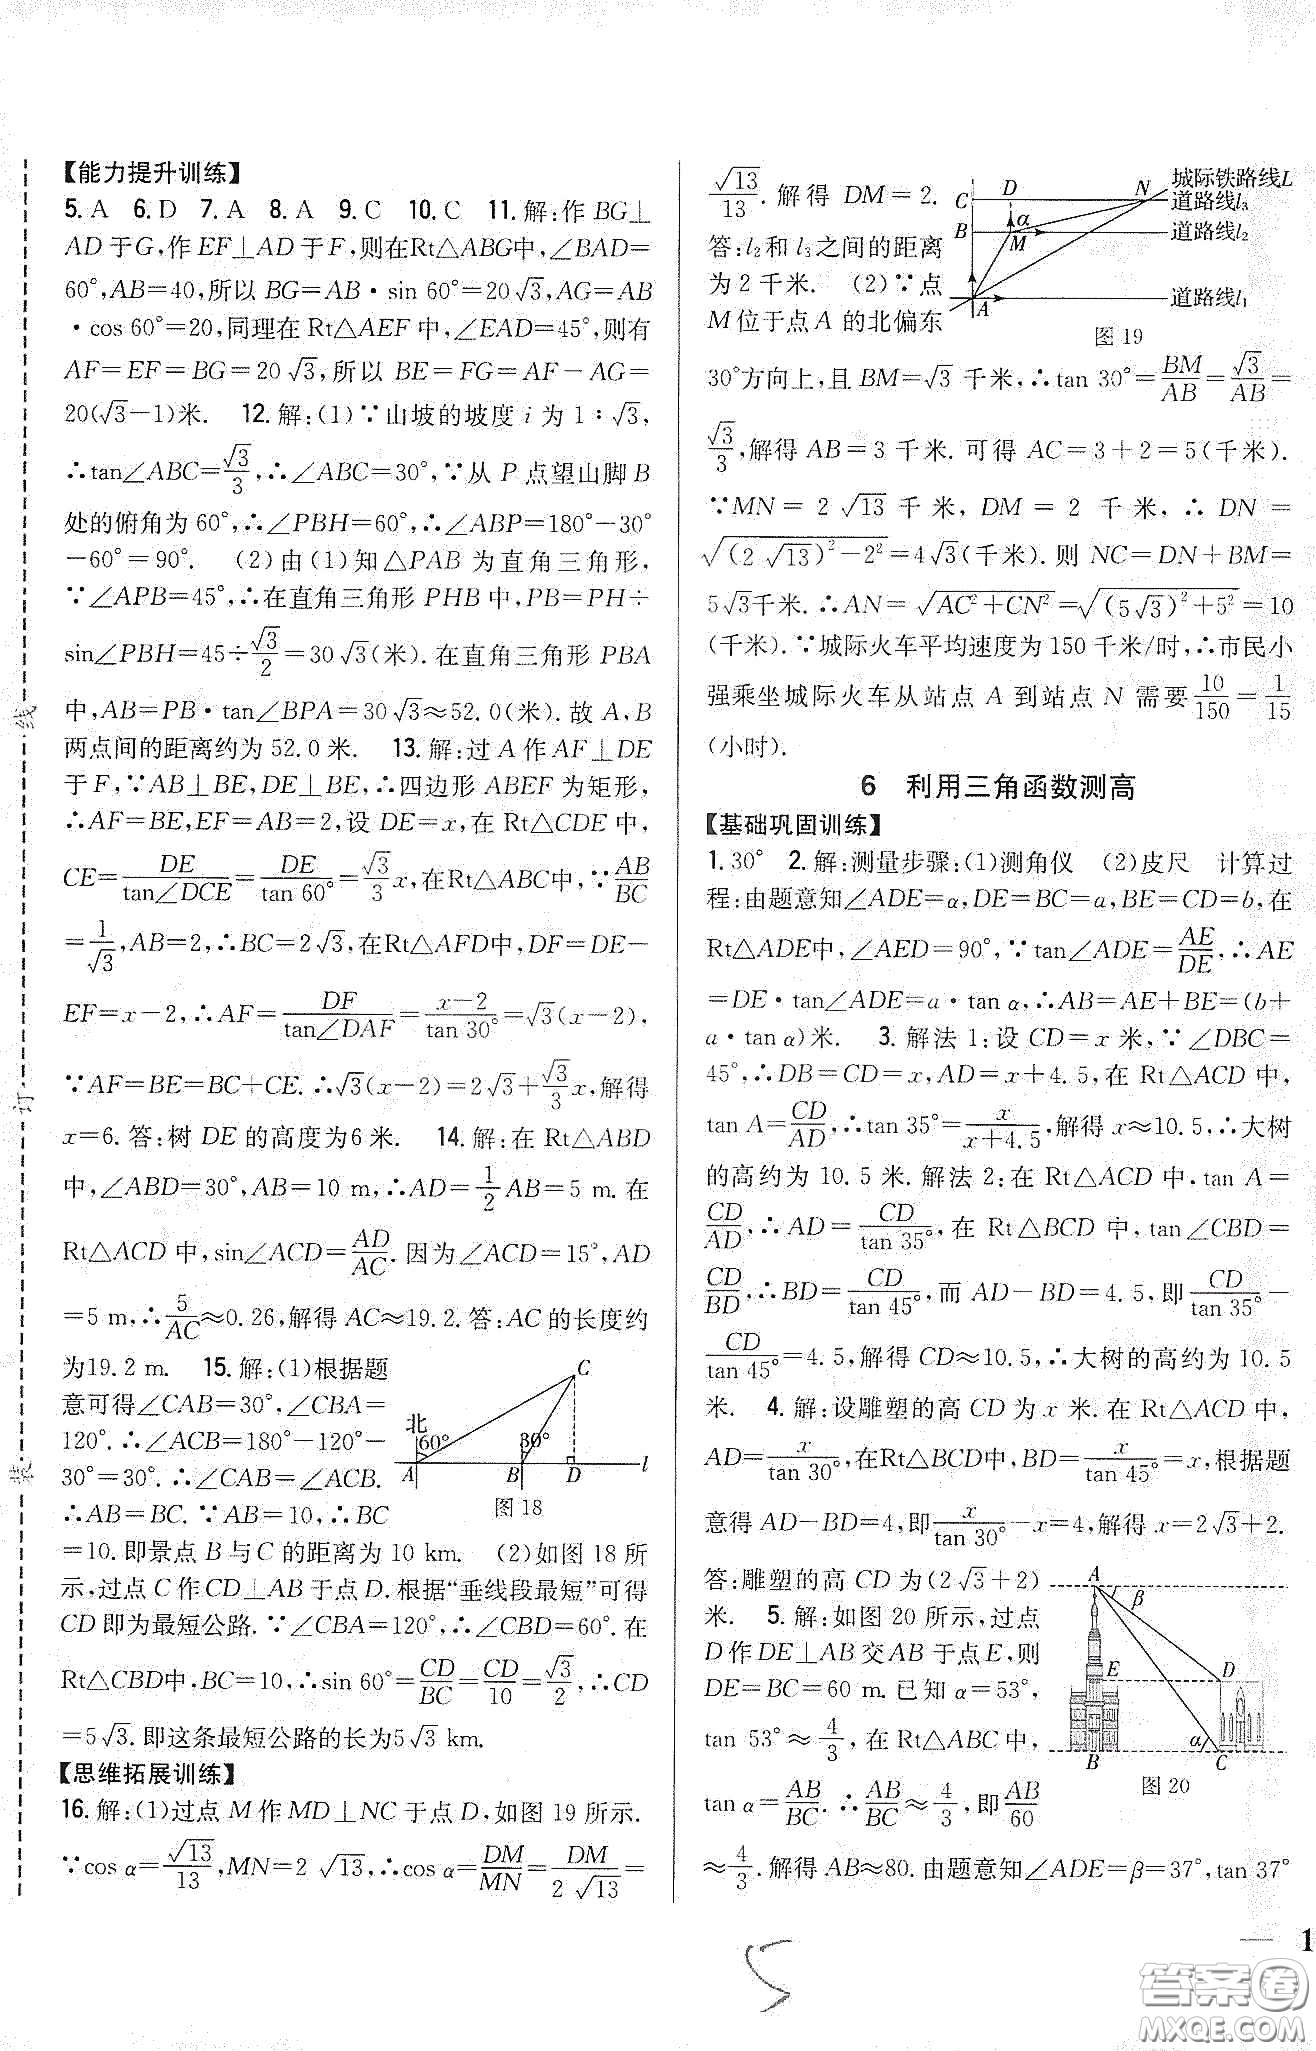 【能力提升训练】
5. A 6. D 7. A 8. A 9. C 10. C 11. 解:作 BG⊥
AD于G,作EF⊥AD于F,则在Rt△ABG中,∠BAD=
60°,AB=40,所以 BG=AB·sin 60°=20√3,AG=AB
·cos 60°=20,同理在 Rt△AEF 中,∠EAD=45°,则有
AF=EF=BG=20√3,所以 BE=FG=AF-AG=
20(√3-1)米. 12. 解:(1)∵山坡的坡度 i 为 1∶√3,
∴tan∠ABC=√3/3,∴∠ABC=30°,∵从 P 点望山脚 B
处的俯角为 60°,∴∠PBH=60°,∴∠ABP=180°-30°
-60°=90°. (2)由(1)知△PAB 为直角三角形,
∵∠APB=45°,∴在直角三角形 PHB 中,PB=PH÷
sin∠PBH=45÷√3/2=30√3(米).在直角三角形 PBA
中,AB=PB·tan∠BPA=30√3≈52.0(米).故 A,B
两点间的距离约为 52.0 米. 13. 解:过 A 作 AF⊥DE
于 F,∵AB⊥BE,DE⊥BE,∴四边形 ABEF 为矩形,
∴AF=BE,EF=AB=2,设 DE=x,在 Rt△CDE 中,
CE=DE/tan∠DCE=DE/tan 60°=√3/3x,在Rt△ABC中,∵AB/BC
=1/√3,AB=2,∴BC=2√3,在Rt△AFD中,DF=DE-
EF=x-2,∴AF=DF/tan∠DAF=x-2/tan 30°=√3(x-2),
∵AF=BE=BC+CE.∴√3(x-2)=2√3+√3/3x,解得
x=6.答:树 DE 的高度为6 米. 14. 解:在 Rt△ABD
中,∠ABD=30°,AB=10 m,∴AD=1/2AB=5 m.在
Rt△ACD 中,sin∠ACD=AD/AC.因为∠ACD=15°,AD
=5 m,∴5/AC≈0.26,解得 AC≈19.2.答:AC 的长度约
为19.2 m. 15. 解:(1)根据题
意可得∠CAB=30°,∠CBA=
120°.∴∠ACB=180°-120°-
30°=30°.∴∠CAB=∠ACB.
∴AB=BC.∵AB=10,∴BC
北 60° 30° A B D C l
图 18
=10.即景点 B 与 C 的距离为 10 km. (2)如图 18 所
示,过点 C 作 CD⊥AB 于点 D.根据“垂线段最短”可得
CD 即为最短公路.∵∠CBA=120°,∴∠CBD=60°.在
Rt△CBD中,BC=10,∴sin 60°=CD/BC=CD/10=√3/2,∴CD
=5√3.即这条最短公路的长为5√3 km.
【思维拓展训练】
16. 解:(1)过点 M 作 MD⊥NC 于点 D,如图 19 所示.
∵cos α=√13/13,MN=2√13,∴cos α=DM/MN=DM/2√13=
√13/13.解得 DM=2.
答:l₂和 l₃之间的距离
为 2 千米. (2)∵点
M 位于点 A 的北偏东
C D N 城际铁路线L
道路线l₃
B M α 道路线l₂
A 道路线l₁
图 19
30°方向上,且 BM=√3 千米,∴tan 30°=BM/AB=√3/AB=
√3/3,解得 AB=3 千米.可得 AC=3+2=5(千米).
∵MN=2√13 千米,DM=2 千米,∴DN=
√(2√13)²-2²=4√3(千米).则 NC=DN+BM=
5√3千米.∴AN=√AC²+CN²=√(5√3)²+5²=10
(千米).∵城际火车平均速度为 150 千米/时,∴市民小
强乘坐城际火车从站点 A 到站点 N 需要 10/150=1/15
(小时).
6 利用三角函数测高
【基础巩固训练】
1. 30° 2. 解:测量步骤:(1)测角仪 (2)皮尺 计算过
程:由题意知∠ADE=α,DE=BC=a,BE=CD=b,在
Rt△ADE中,∠AED=90°,∵tan∠ADE=AE/DE,∴AE
=DE·tan∠ADE=a·tan α,∴AB=AE+BE=(b+
a·tan α)米. 3. 解法 1:设 CD=x 米,∵∠DBC=
45°,∴DB=CD=x,AD=x+4.5,在 Rt△ACD 中,
tan A=CD/AD,∴tan 35°=x/x+4.5,解得 x≈10.5,∴大树
的高约为 10.5 米.解法 2:在 Rt△ACD 中,tan A=
CD/AD,∴AD=CD/tan 35°,在 Rt△BCD 中,tan∠CBD=
CD/BD,∴BD=CD/tan 45°,而 AD-BD=4.5,即CD/tan 35°-
CD/tan 45°=4.5,解得 CD≈10.5,∴大树的高约为 10.5
米. 4. 解:设雕塑的高 CD 为 x 米.在 Rt△ACD 中,
AD=x/tan 30°,在Rt△BCD中,BD=x/tan 45°=x,根据题
意得 AD-BD=4,即x/tan 30°-x=4,解得 x=2√3+2.
答:雕塑的高 CD 为(2√3+2)
米. 5. 解:如图 20 所示,过点
D 作 DE⊥AB 交 AB 于点 E,则
DE=BC=60 m.已知 α=53°,
tan 53°≈4/3,在 Rt△ABC 中,
tan α=AB/BC.∴AB/BC≈4/3,即AB/60
A β E D α B C
图 20
≈4/3.解得 AB≈80.由题意知∠ADE=β=37°,tan 37°
装 订 线
5
— 1
答案卷
MXQE.COM